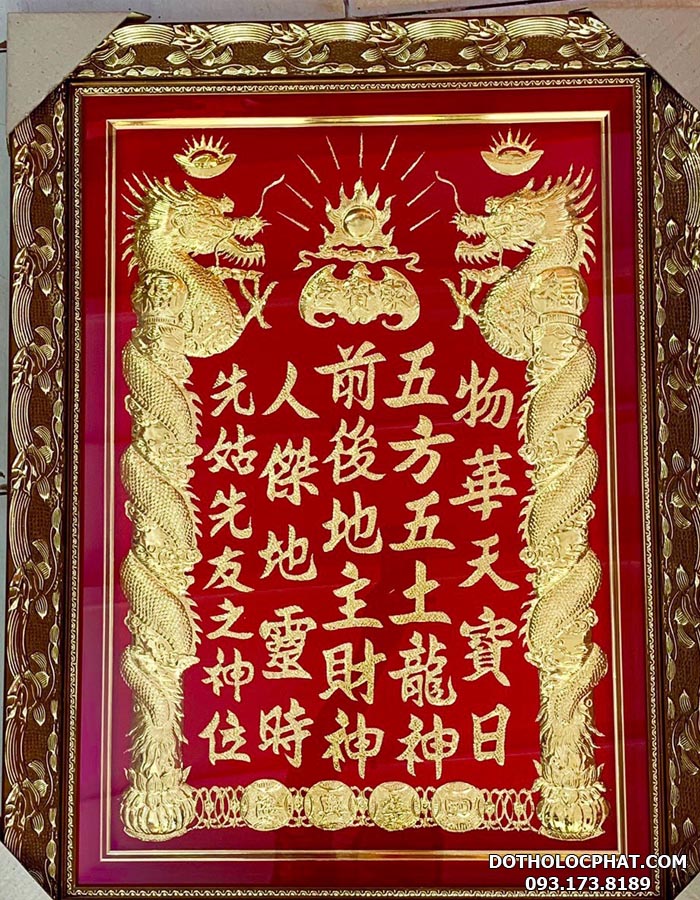 福
聚寶堂
福
物華天寳日
五方五土龍神
前後地主財神
人傑地靈時
先姑先友之神位
DOTHOLOCPHAT.COM
093.173.8189